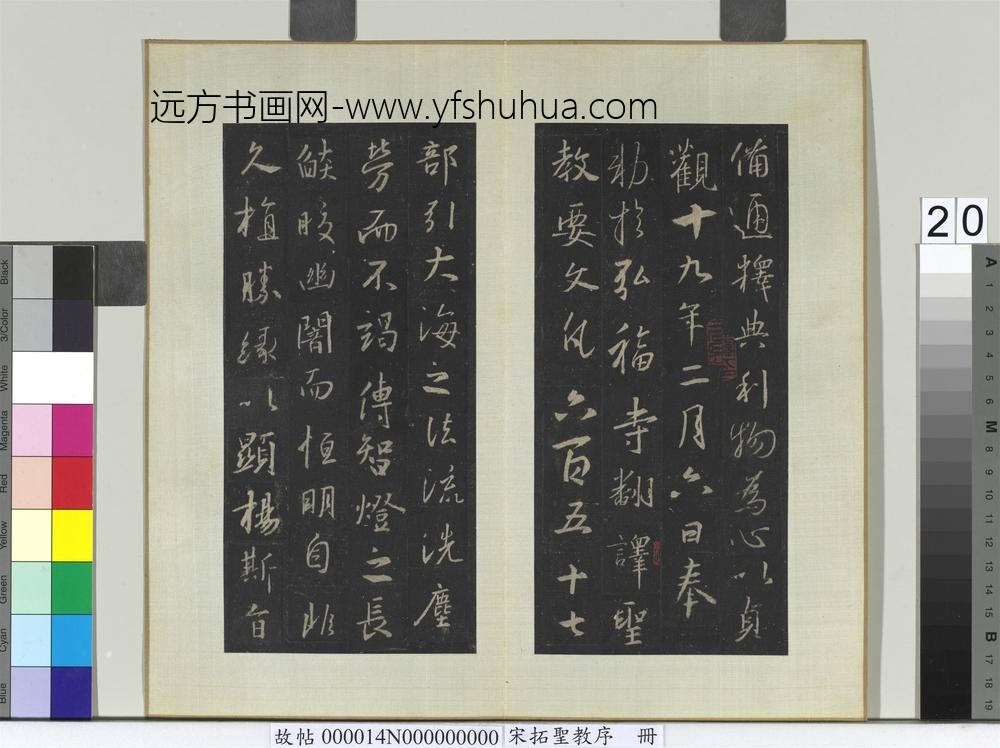 远方书画网-www.yfshuhua.com
備通釋典利物為心以貞
觀十九年二月六日奉
勑於弘福寺翻譯聖
教要文凡六百五十七
部引大海之法流洗塵
勞而不竭傳智燈之長
燄皎幽闇而恒明自非
久植勝緣以顯揚斯旨
20
Black
3/Color
White
Magenta
Red
Yellow
Green
Cyan
Blue
A
1
2
3
4
5
6
M
8
9
10
11
12
13
14
15
B
17
18
19
故帖 000014N000000000 宋拓聖教序 冊